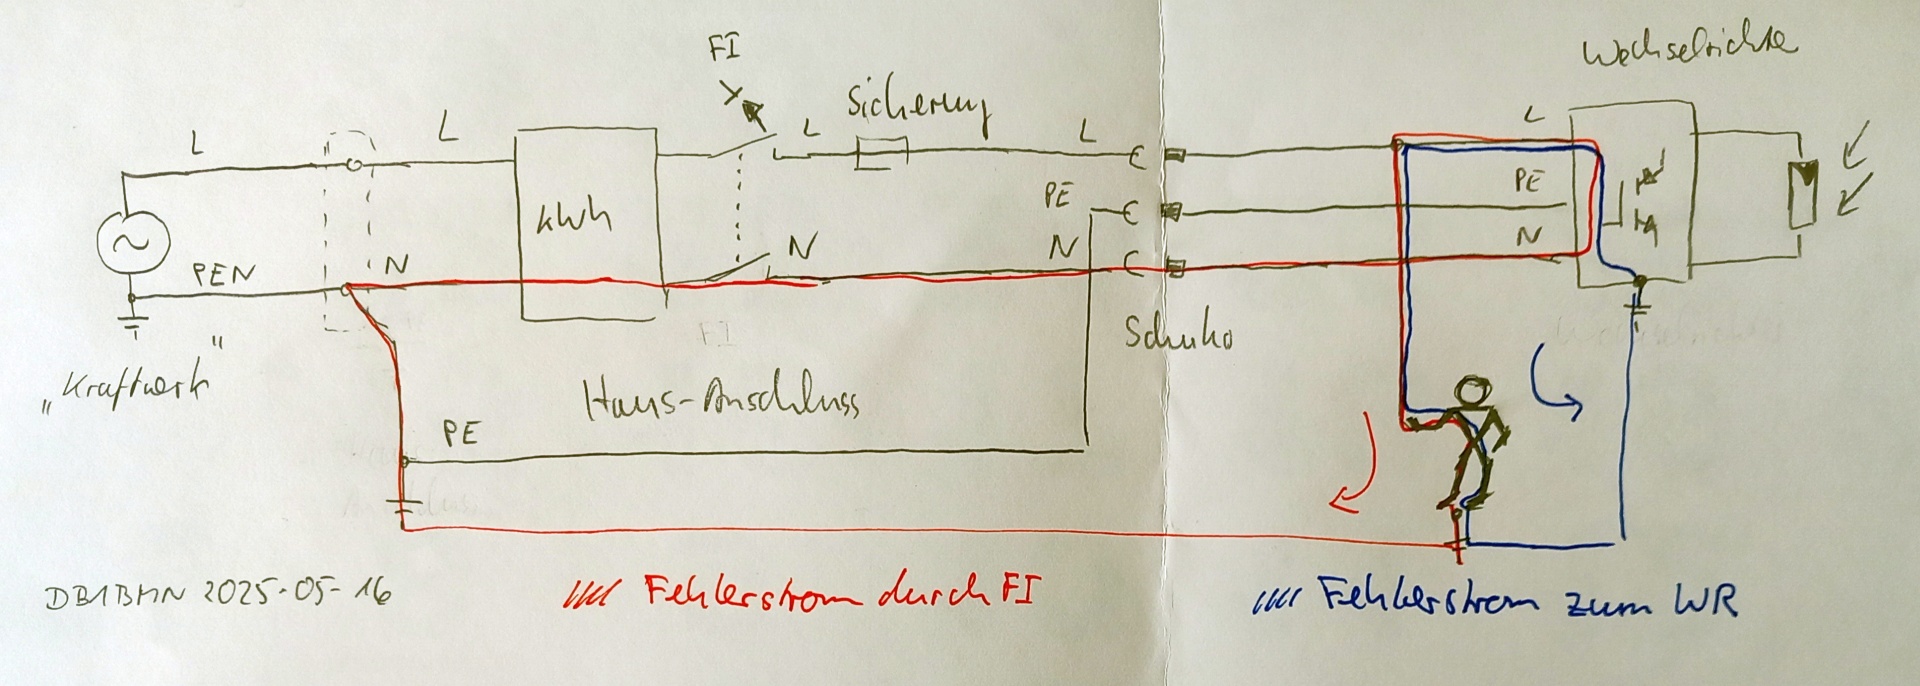 FI
Wechselrichter
L
L
L
Sicherung
L
L
kWh
PE
PE
PEN
N
N
N
N
Schuko
„Kraftwerk"
Haus-Anschluss
PE
DB1BMN 2025-05-16
Fehlerstrom durch FI
Fehlerstrom zum WR